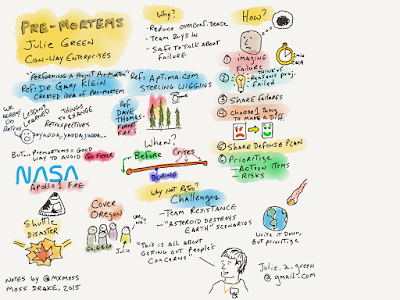 PRE-MORTEMS
Julie Green
Con-Way Enterprises
"Performing a Project Pre-Mortem"
Ref: Dr Gary Klein
Created idea of Pre-Mortem
We already do retros
Lessons Learned
Things to Change
Retrospectives
Yadda, yadda, yadda...
But... Pre-mortems = Good
way to avoid Go Fever
NASA
Apollo 1 Fire
Shuttle
Disaster
Cover
Oregon
Go, Go, Go
Julie
Notes by @mxmoss
Moss Drake, 2015
Why?
- Reduce overconfidence
- Team buys in
- Safe to talk about
Failure
Ref: Aptima.com
Sterling Wiggins
Ref
Dave
Thomas
Forest
Fires
When?
Before
Crises
During
Why Not Retro?
Challenges
- Team Resistance
- "Asteroid Destroys
Earth" Scenarios
"This is all about
getting out people's
concerns."
How?
① Imagine
Failure
2 min
each
② Think of
reasons proj.
failed
③ Share Failures
④ Choose 1 thing
to make a diff.
⑤ Share Defense Plan
⑥ Prioritize
- Action Items
- Risks
Write it down,
But prioritize
Julie.z.green
@gmail.com